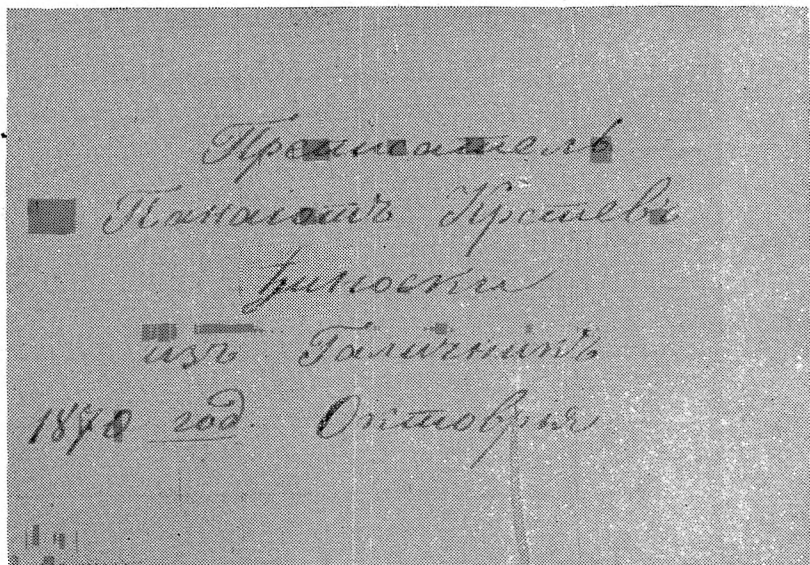 Преписатель
Панаіотъ Крстевъ
Ђиноски
изъ Галичникъ
1878 год. Октоврія